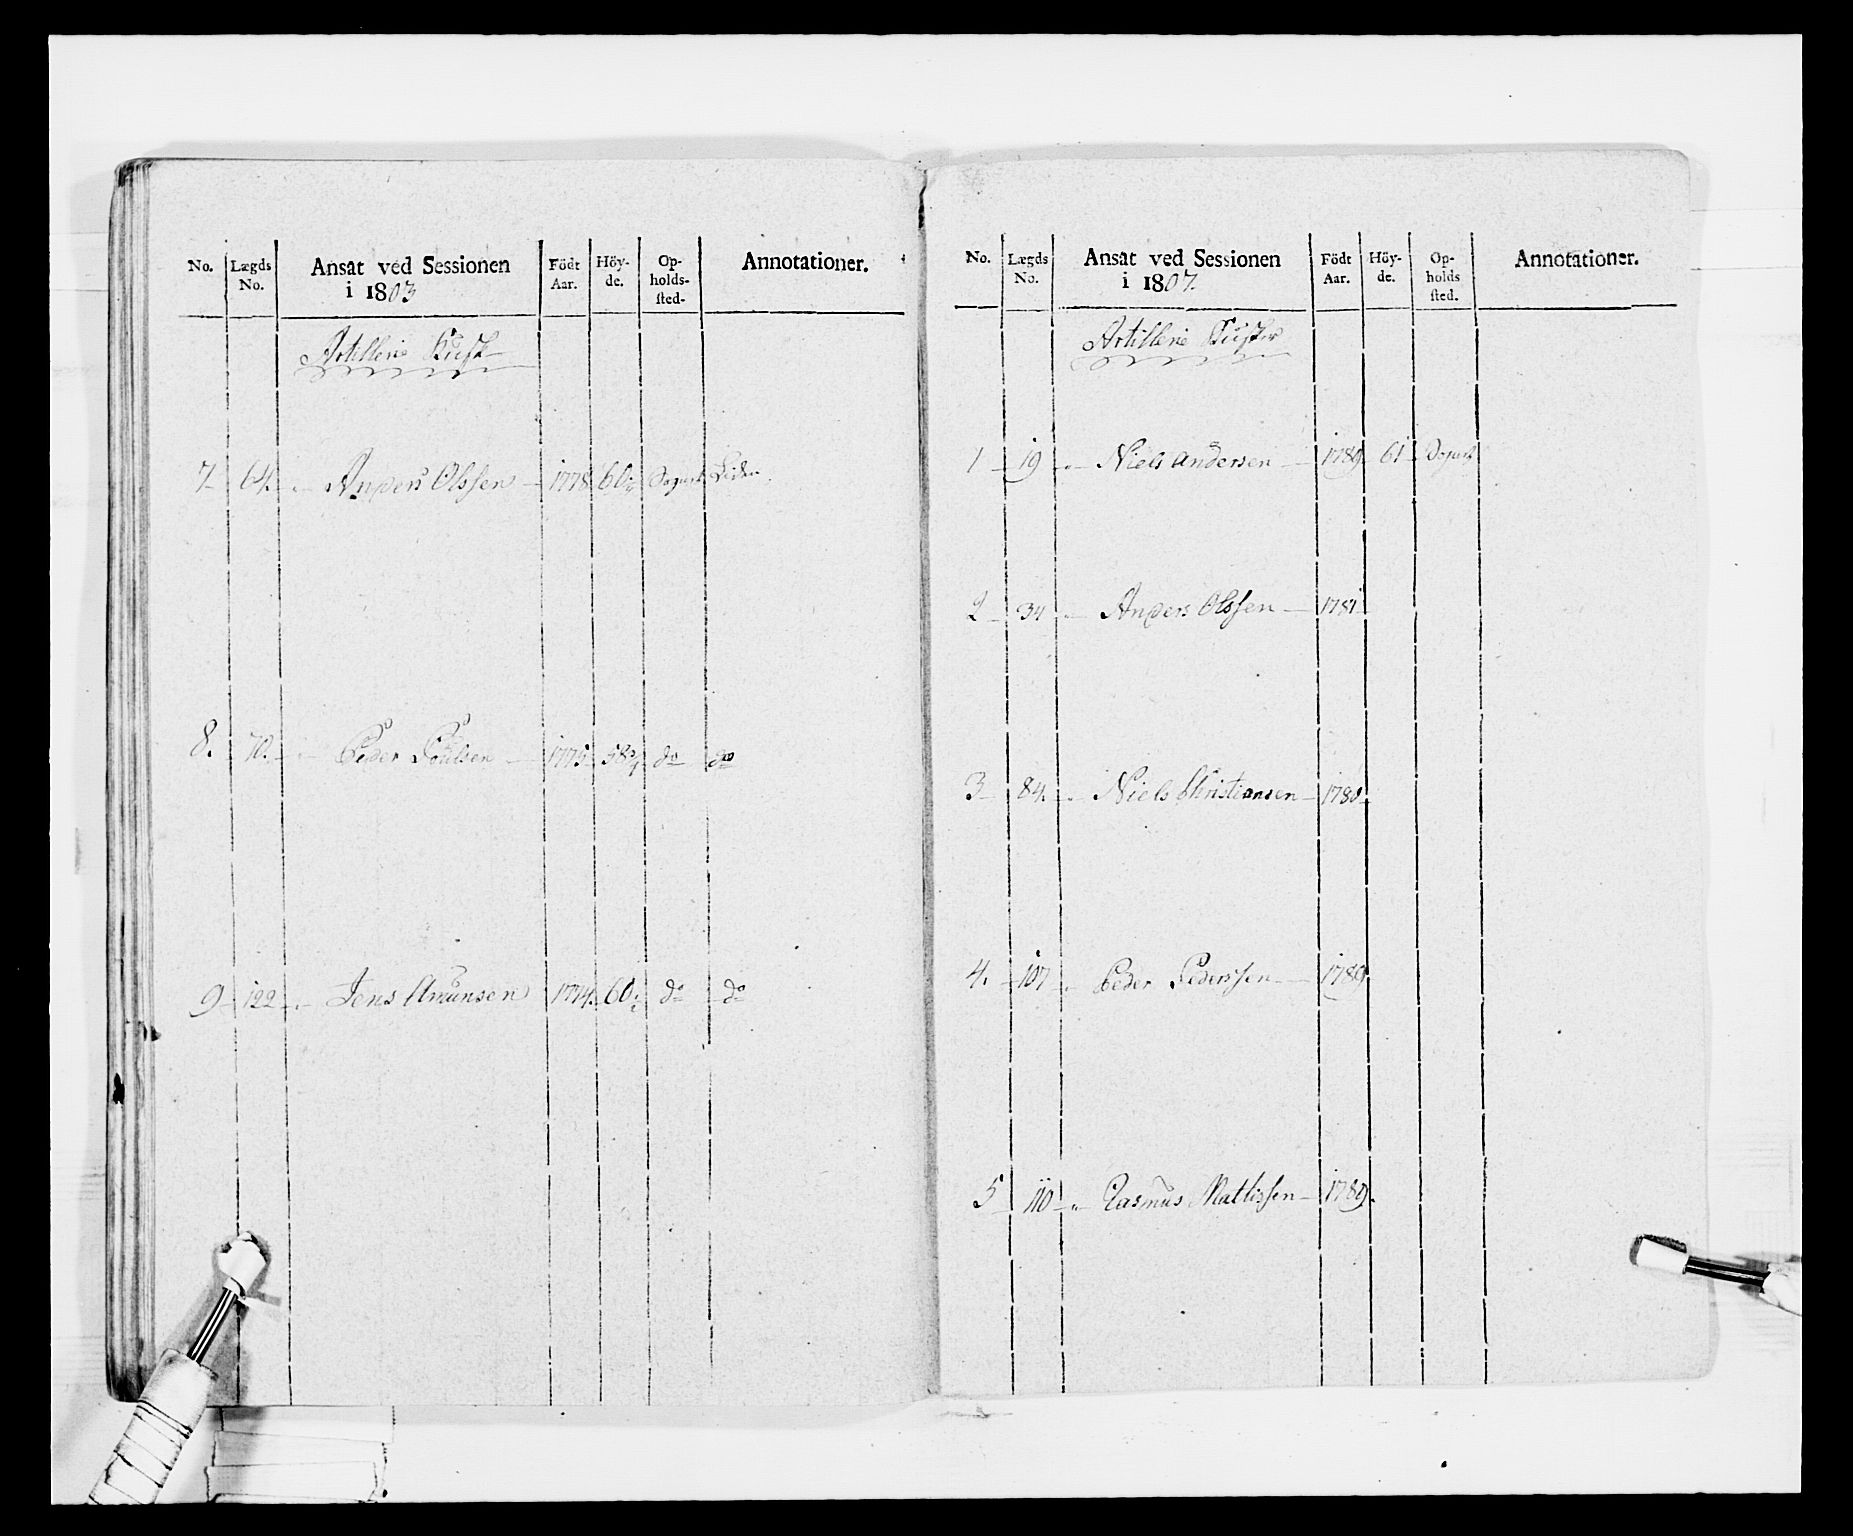 No. Lægds No. Ansat ved Sessionen i 1803 Födt Aar. Höy- de. Op- holds- sted- Annotationer.
Artillerie Kusk
7 64. Anders Olssen 1778 60
8. 70. Peder Poulsen 1775 58 3/4 do do
9 122 Jens Amunsen 1774. 60 do do
No. Lægds No. Ansat ved Sessionen i 1807. Födt Aar. Höy- de. Op- holds sted. Annotationer.
Artillerie Kusker
1 19 Niels Andersen 1789 61
2 34 Anders Olssen 1781
3 84. Niels Christiansen 1780
4. 107 Peder Pederssen 1789
5 110 Rasmus Mattissen 1789.